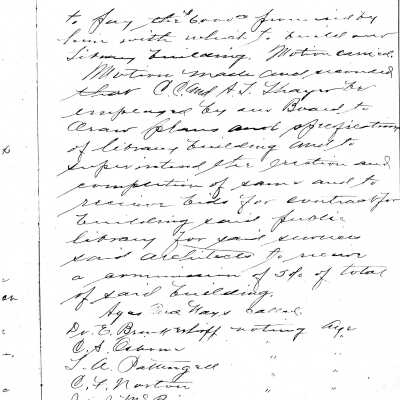 to pay the
him with which to build our
Library building. Motion carried.
Motion made and seconded
that C.C. and A.L. Thayer be
employed by our Board to
draw plans and specifications
of library building and to
superintend the erection and
completion of same and to
receive bids for contract for
building said public
library for said services
said architects to receive
a commission of 5% of total
of said building.
Ayes and Nays called.
Dr. E. Brinkerhoff voting Aye
C. A. Osborne " "
L. A. Pattengell " "
C. L. Norton " "